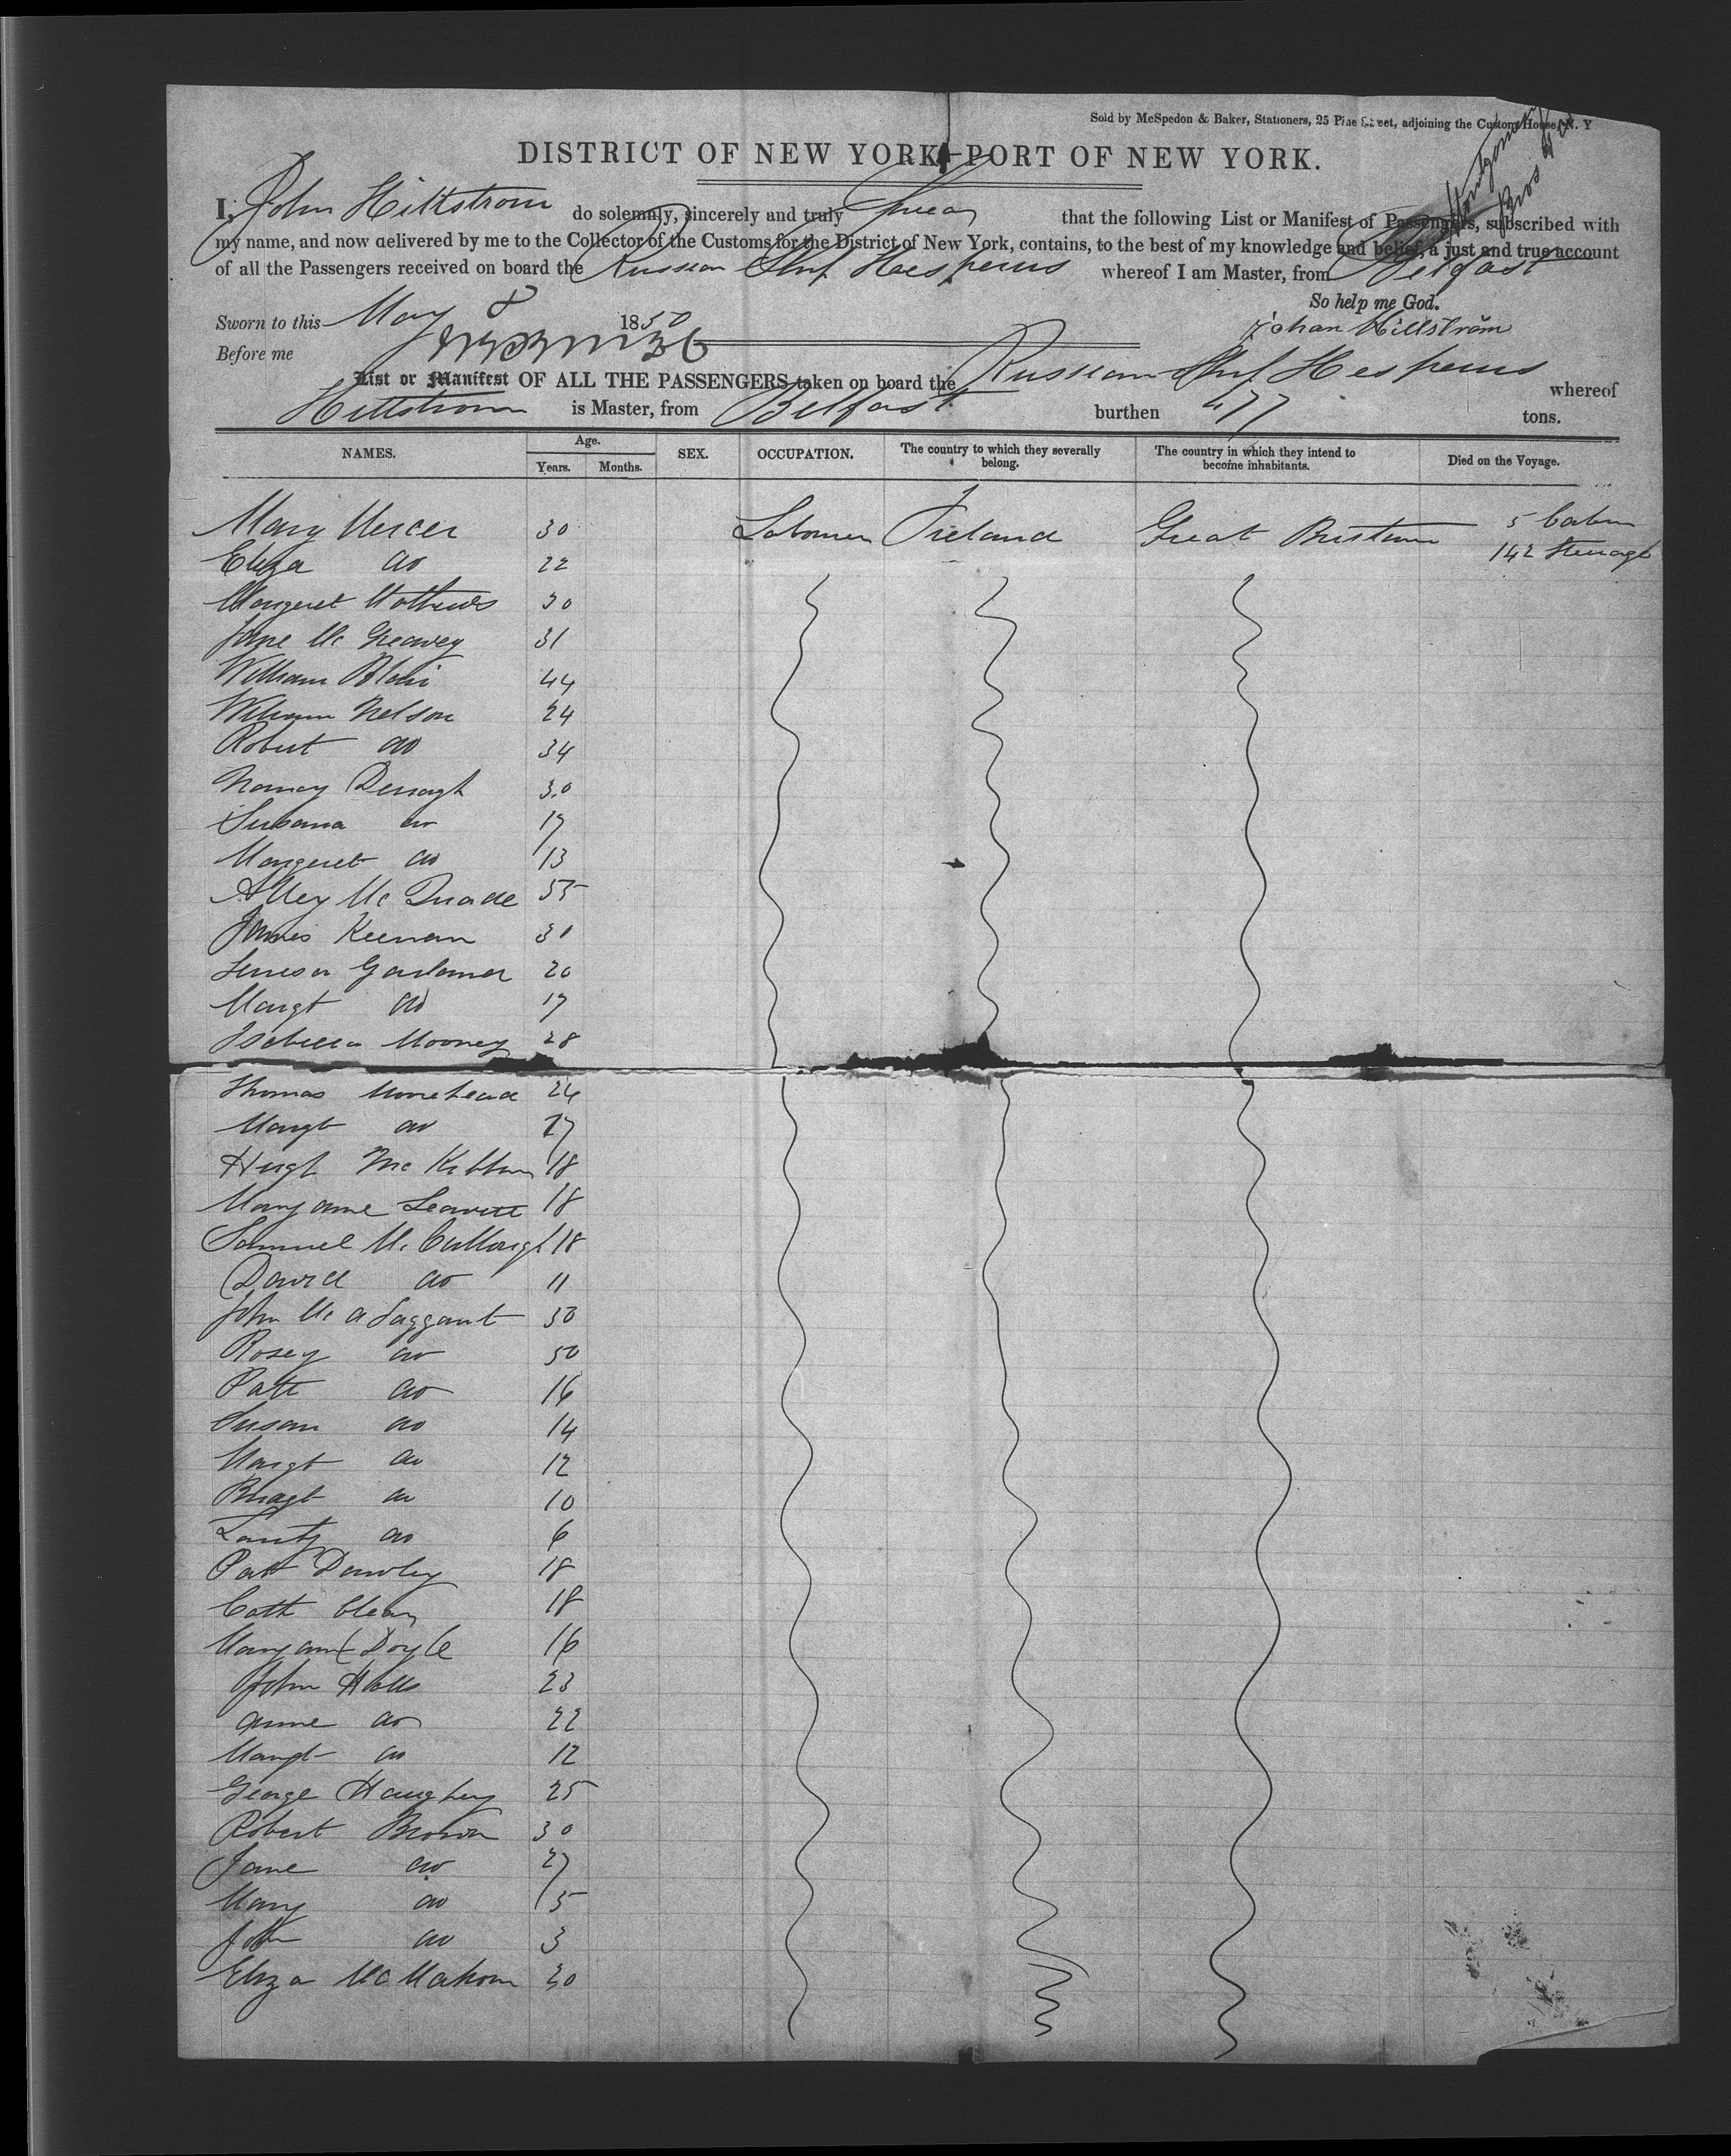 Sold by McSpedon & Baker, Stationers, 25 Pine Street, adjoining the Custom House, N. Y
Montgomery
Bros
DISTRICT OF NEW YORK—PORT OF NEW YORK.
I, John Hillstrom do solemnly, sincerely and truly swear that the following List or Manifest of Passengers, subscribed with
my name, and now delivered by me to the Collector of the Customs for the District of New York, contains, to the best of my knowledge and belief, a just and true account
of all the Passengers received on board the Russian Ship Haesperus whereof I am Master, from Belfast
So help me God.
Sworn to this May 8 1850
Johan Hillström
Before me
List or Manifest OF ALL THE PASSENGERS taken on board the Russian Ship Hesperus whereof
Hillstrom is Master, from Belfast burthen 477 tons.
NAMES. Age. Years. Months. SEX. OCCUPATION. The country to which they severally belong. The country in which they intend to become inhabitants. Died on the Voyage.
Mary Mercer 30 Labourer Ireland Great Britain 5 Cabin
Eliza do 22 142 Steerage
Margeret Mathews 30
Jane Mc Greavey 31
William Blair 44
William Nelson 24
Robert do 34
Nancy Derragh 30
Susana do 17
Margeret do 13
Alley Mc Quade 55
James Keenan 31
Gardener 20
Margt do 17
Isabella Mooney 28
Thomas Morehead 24
Margt do 27
Hugh Mc Kibbin 18
Mary anne Leavitt 18
Samuel Mc Cullough 18
David do 11
John Mc a Taggart 50
Rosey do 50
Patt do 16
Susan do 14
Margt do 12
Bridgt do 10
do 6
Patt Dowley 18
Cath Clean 18
Mary ann Doyle 16
John Halls 23
Anne do 22
Margt do 12
George Haughey 25
Robert Brown 30
Jane do 27
Mary do 5
John do 3
Eliza Mc Mahon 30